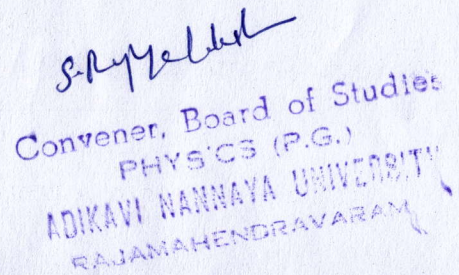 Convener, Board of Studies
PHYSICS (P.G.)
ADIKAVI NANNAYA UNIVERSITY
RAJAMAHENDRAVARAM